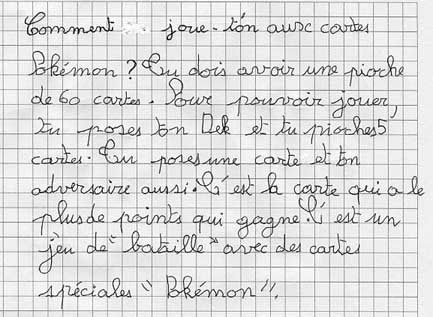 Comment joue-t'on aux cartes
Pokémon ? Tu dois avoir une pioche
de 60 cartes. Pour pouvoir jouer,
tu poses ton Dek et tu pioches 5
cartes. Tu poses une carte et ton
adversaire aussi. C'est la carte qui a le
plus de points qui gagne. C'est un
jeu de "bataille" avec des cartes
spéciales "Pokémon".